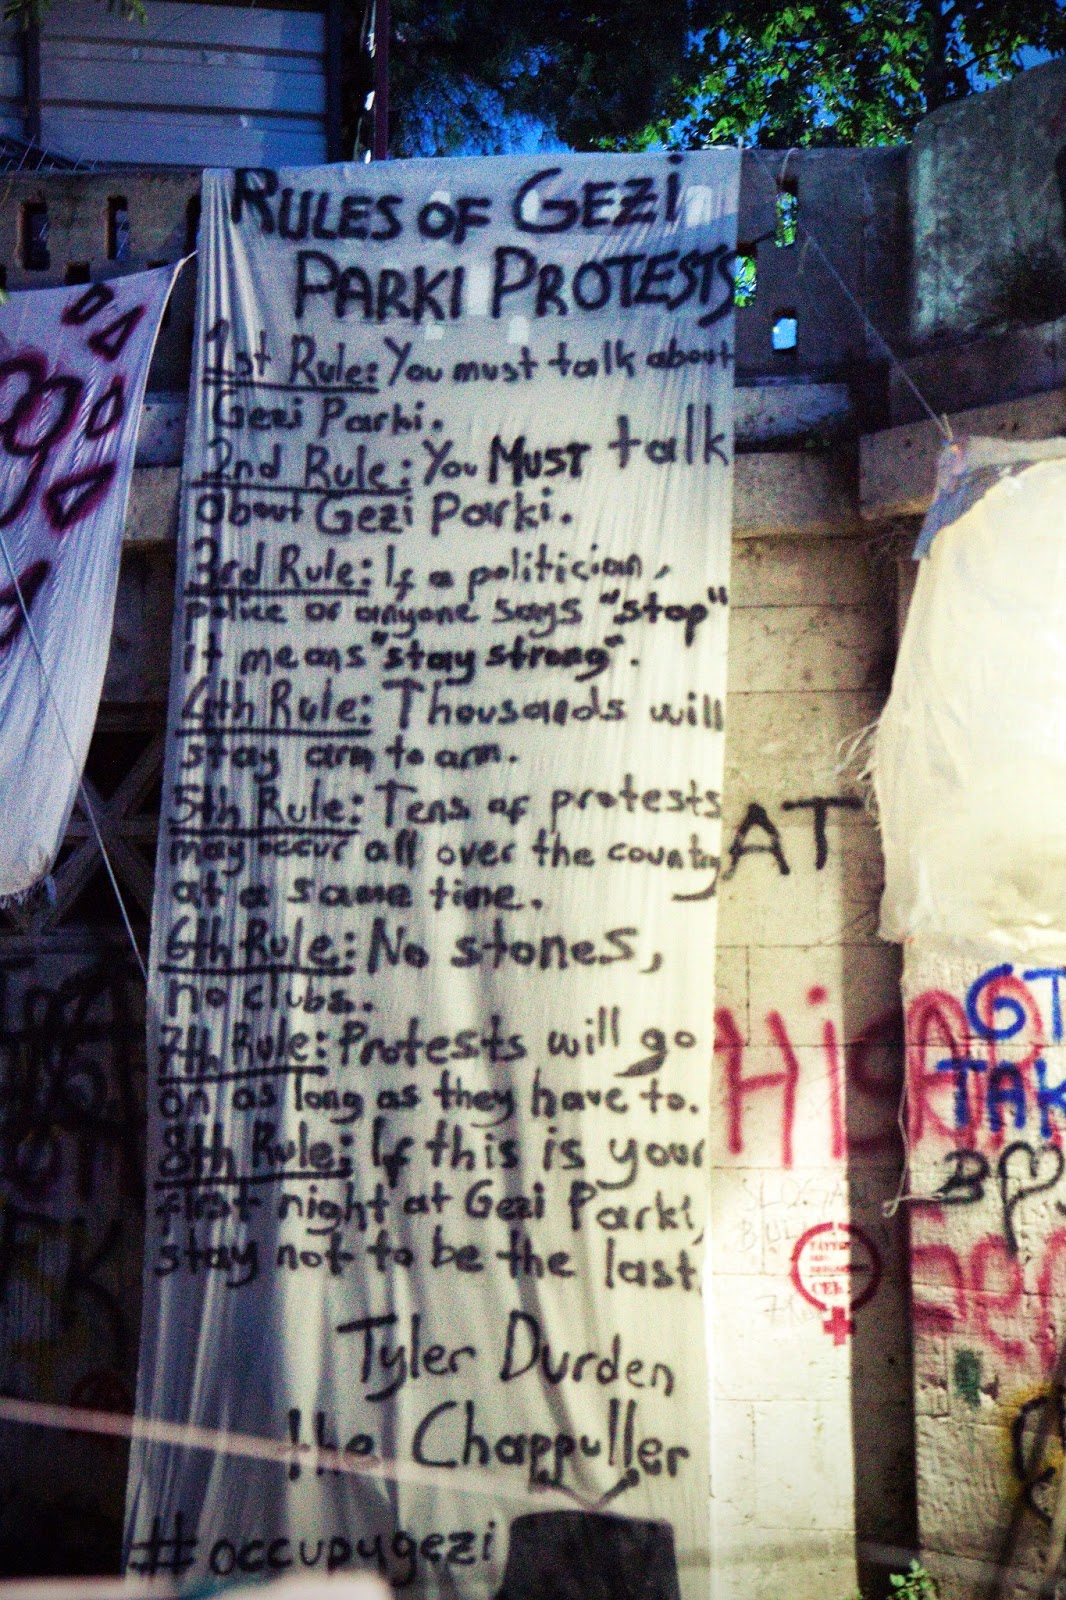 RULES OF GEZI
PARKI PROTESTS
1st Rule: You must talk about
Gezi Parki.
2nd Rule: You MUST talk
about Gezi Parki.
3rd Rule: If a politician,
police or anyone says "stop"
it means "stay strong".
4th Rule: Thousands will
stay arm to arm.
5th Rule: Tens of protests
may occur all over the country
at a same time.
6th Rule: No stones,
no clubs.
7th Rule: Protests will go
on as long as they have to.
8th Rule: If this is your
first night at Gezi Parki,
stay not to be the last.
Tyler Durden
the Chappuller
#occupygezi
AT
SLOGAN
GT
TAK
B